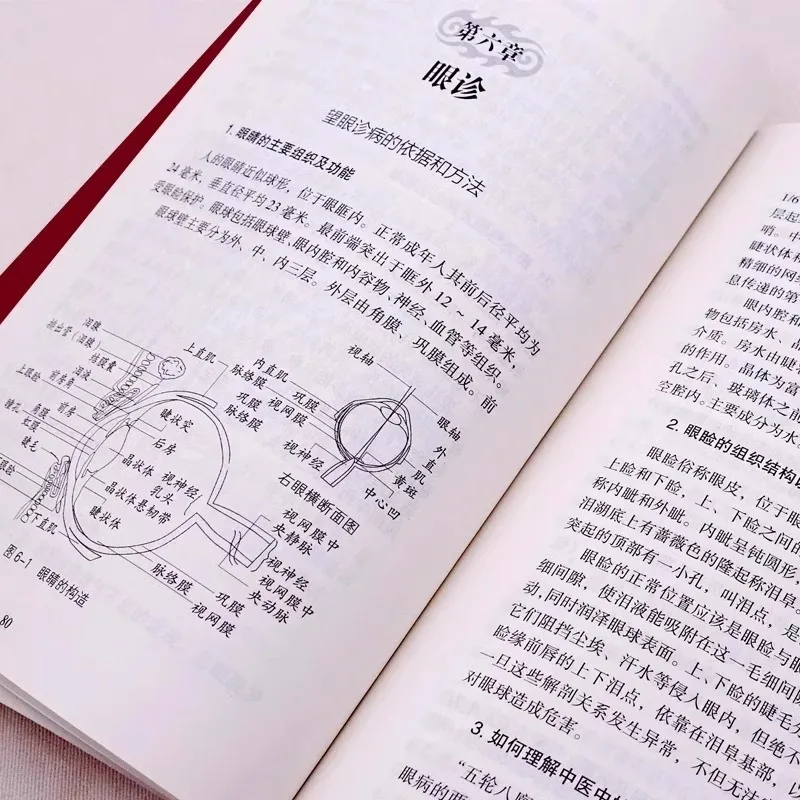 第六章
眼诊
望眼诊病的依据和方法
1. 眼睛的主要组织及功能
人的眼睛近似球形，位于眼眶内。正常成年人其前后径平均为
24毫米，垂直径平均23毫米。最前端突出于眶外12~14毫米，
受眼睑保护。眼球包括眼球壁、眼内腔和内容物、神经、血管等组织。
眼球壁主要分为外、中、内三层。外层由角膜、巩膜组成。前
泪腺
排出管（泪腺）
结膜囊
泪液
上眼睑
前房角
瞳孔
角膜
前房
虹膜
睫毛
下直肌
上直肌
睫状突
后房
晶状体
晶状体悬韧带
睫状体
视神经
乳头
脉络膜
巩膜
视网膜
视网膜中
央静脉
视神经
视网膜中
央动脉
脉络膜
巩膜
视网膜
内直肌
巩膜
脉络膜
视网膜
视神经
视轴
眼轴
外
直
肌
黄斑
中心凹
右眼横断面图
图6-1 眼睛的构造
80
1/6
层起
哨。中
睫状体和
精细的网络
息传递的第
眼内腔和
物包括房水、晶
介质。房水由睫
的作用。晶体为富
孔之后、玻璃体之前
空腔内。主要成分为水
2. 眼睑的组织结构
眼睑俗称眼皮，位于眼
上睑和下睑，上、下睑之间的
称内眦和外眦。内眦呈钝圆形，
泪湖底上有蔷薇色的隆起称泪阜
突起的顶部有一小孔，叫泪点，是
眼睑的正常位置应该是眼睑与眼
细间隙，使泪液能吸附在这一毛细间隙
动，同时润泽眼球表面。上、下睑的睫毛
它们阻挡尘埃、汗水等侵入眼内，但绝不
睑缘前唇的上下泪点，依靠在泪阜基部，以
一旦这些解剖关系发生异常，不但无法
对眼球造成危害。
3. 如何理解中医中
“五轮八廓
眼病的两